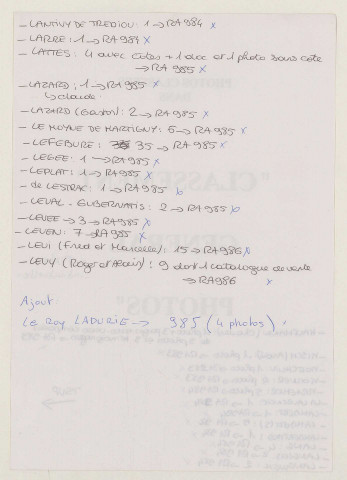 - LANTIVY DE TREDION: 1 → RA 984 x
- LARRE: 1 → RA 984 x
- LATTES: 4 avec cotes + 1 doc et 1 photo sans cote
→ RA 985 x
- LAZARD; 1 → RA 985 x
↳ claude
- LAZARD (Gaston): 2 → RA 985 x
- LE MOYNE DE MARTIGNY: 5 → RA 985 x
- LEFEBURE: 35 → RA 985 x
- LEGEE: 1 → RA 985 x
- LEPLAT: 1 → RA 985 x
- de LESTRAC: 1 → RA 985
- LEVAL - GUBERNATIS: 2 → RA 985
- LEVEE → 3 → RA 985 x
- LEVEN: 7 → RA 985 x
- LEVI (Fred et Marcelle): 15 → RA 986 x
- LEVY (Roger et Alain): 9 dont 1 catalogue de vente
→ RA 986 x
Ajout:
Le Roy LADURIE → 985 (4 photos)